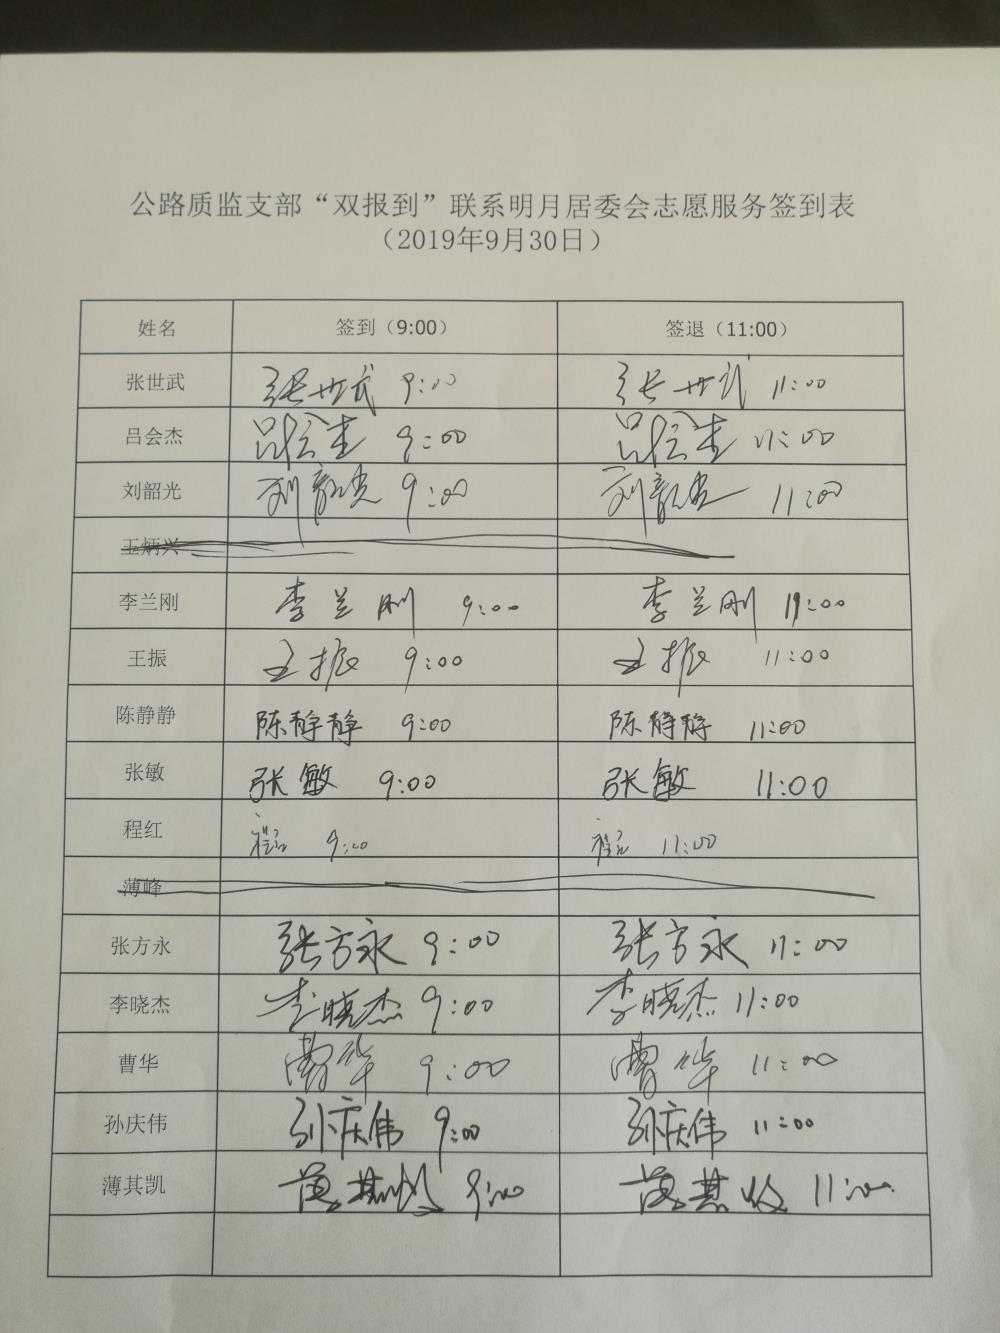 公路质监支部“双报到”联系明月居委会志愿服务签到表
（2019年9月30日）
姓名 签到（9:00） 签退（11:00）
张世武 张世武 9:00 张世武 11:00
吕会杰 吕会杰 9:00 吕会杰 11:00
刘韶光 刘韶光 9:00 刘韶光 11:00
王炳兴
李兰刚 李兰刚 9:00 李兰刚 11:00
王振 王振 9:00 王振 11:00
陈静静 陈静静 9:00 陈静静 11:00
张敏 张敏 9:00 张敏 11:00
程红 程红 9:00 程红 11:00
薄峰
张方永 张方永 9:00 张方永 11:00
李晓杰 李晓杰 9:00 李晓杰 11:00
曹华 曹华 9:00 曹华 11:00
孙庆伟 孙庆伟 9:00 孙庆伟 11:00
薄其凯 薄其凯 9:00 薄其凯 11:00